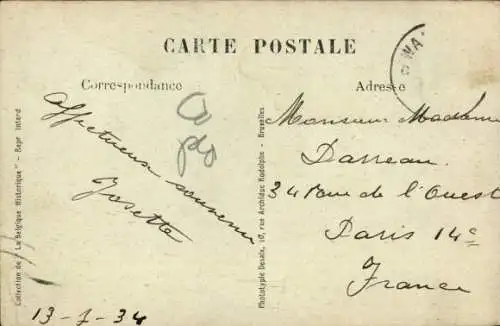 CARTE POSTALE
Correspondance
Adresse
WA
Affectueux souvenir
Josette
13-7-34
Monsieur Madame
Darreau.
34 Rue de l'Ouest
Paris 14e
France
Collection de "La Belgique Historique" - Repr. interd
Phototypie Desaix, 10, rue Archiduc Rodolphe - Bruxelles